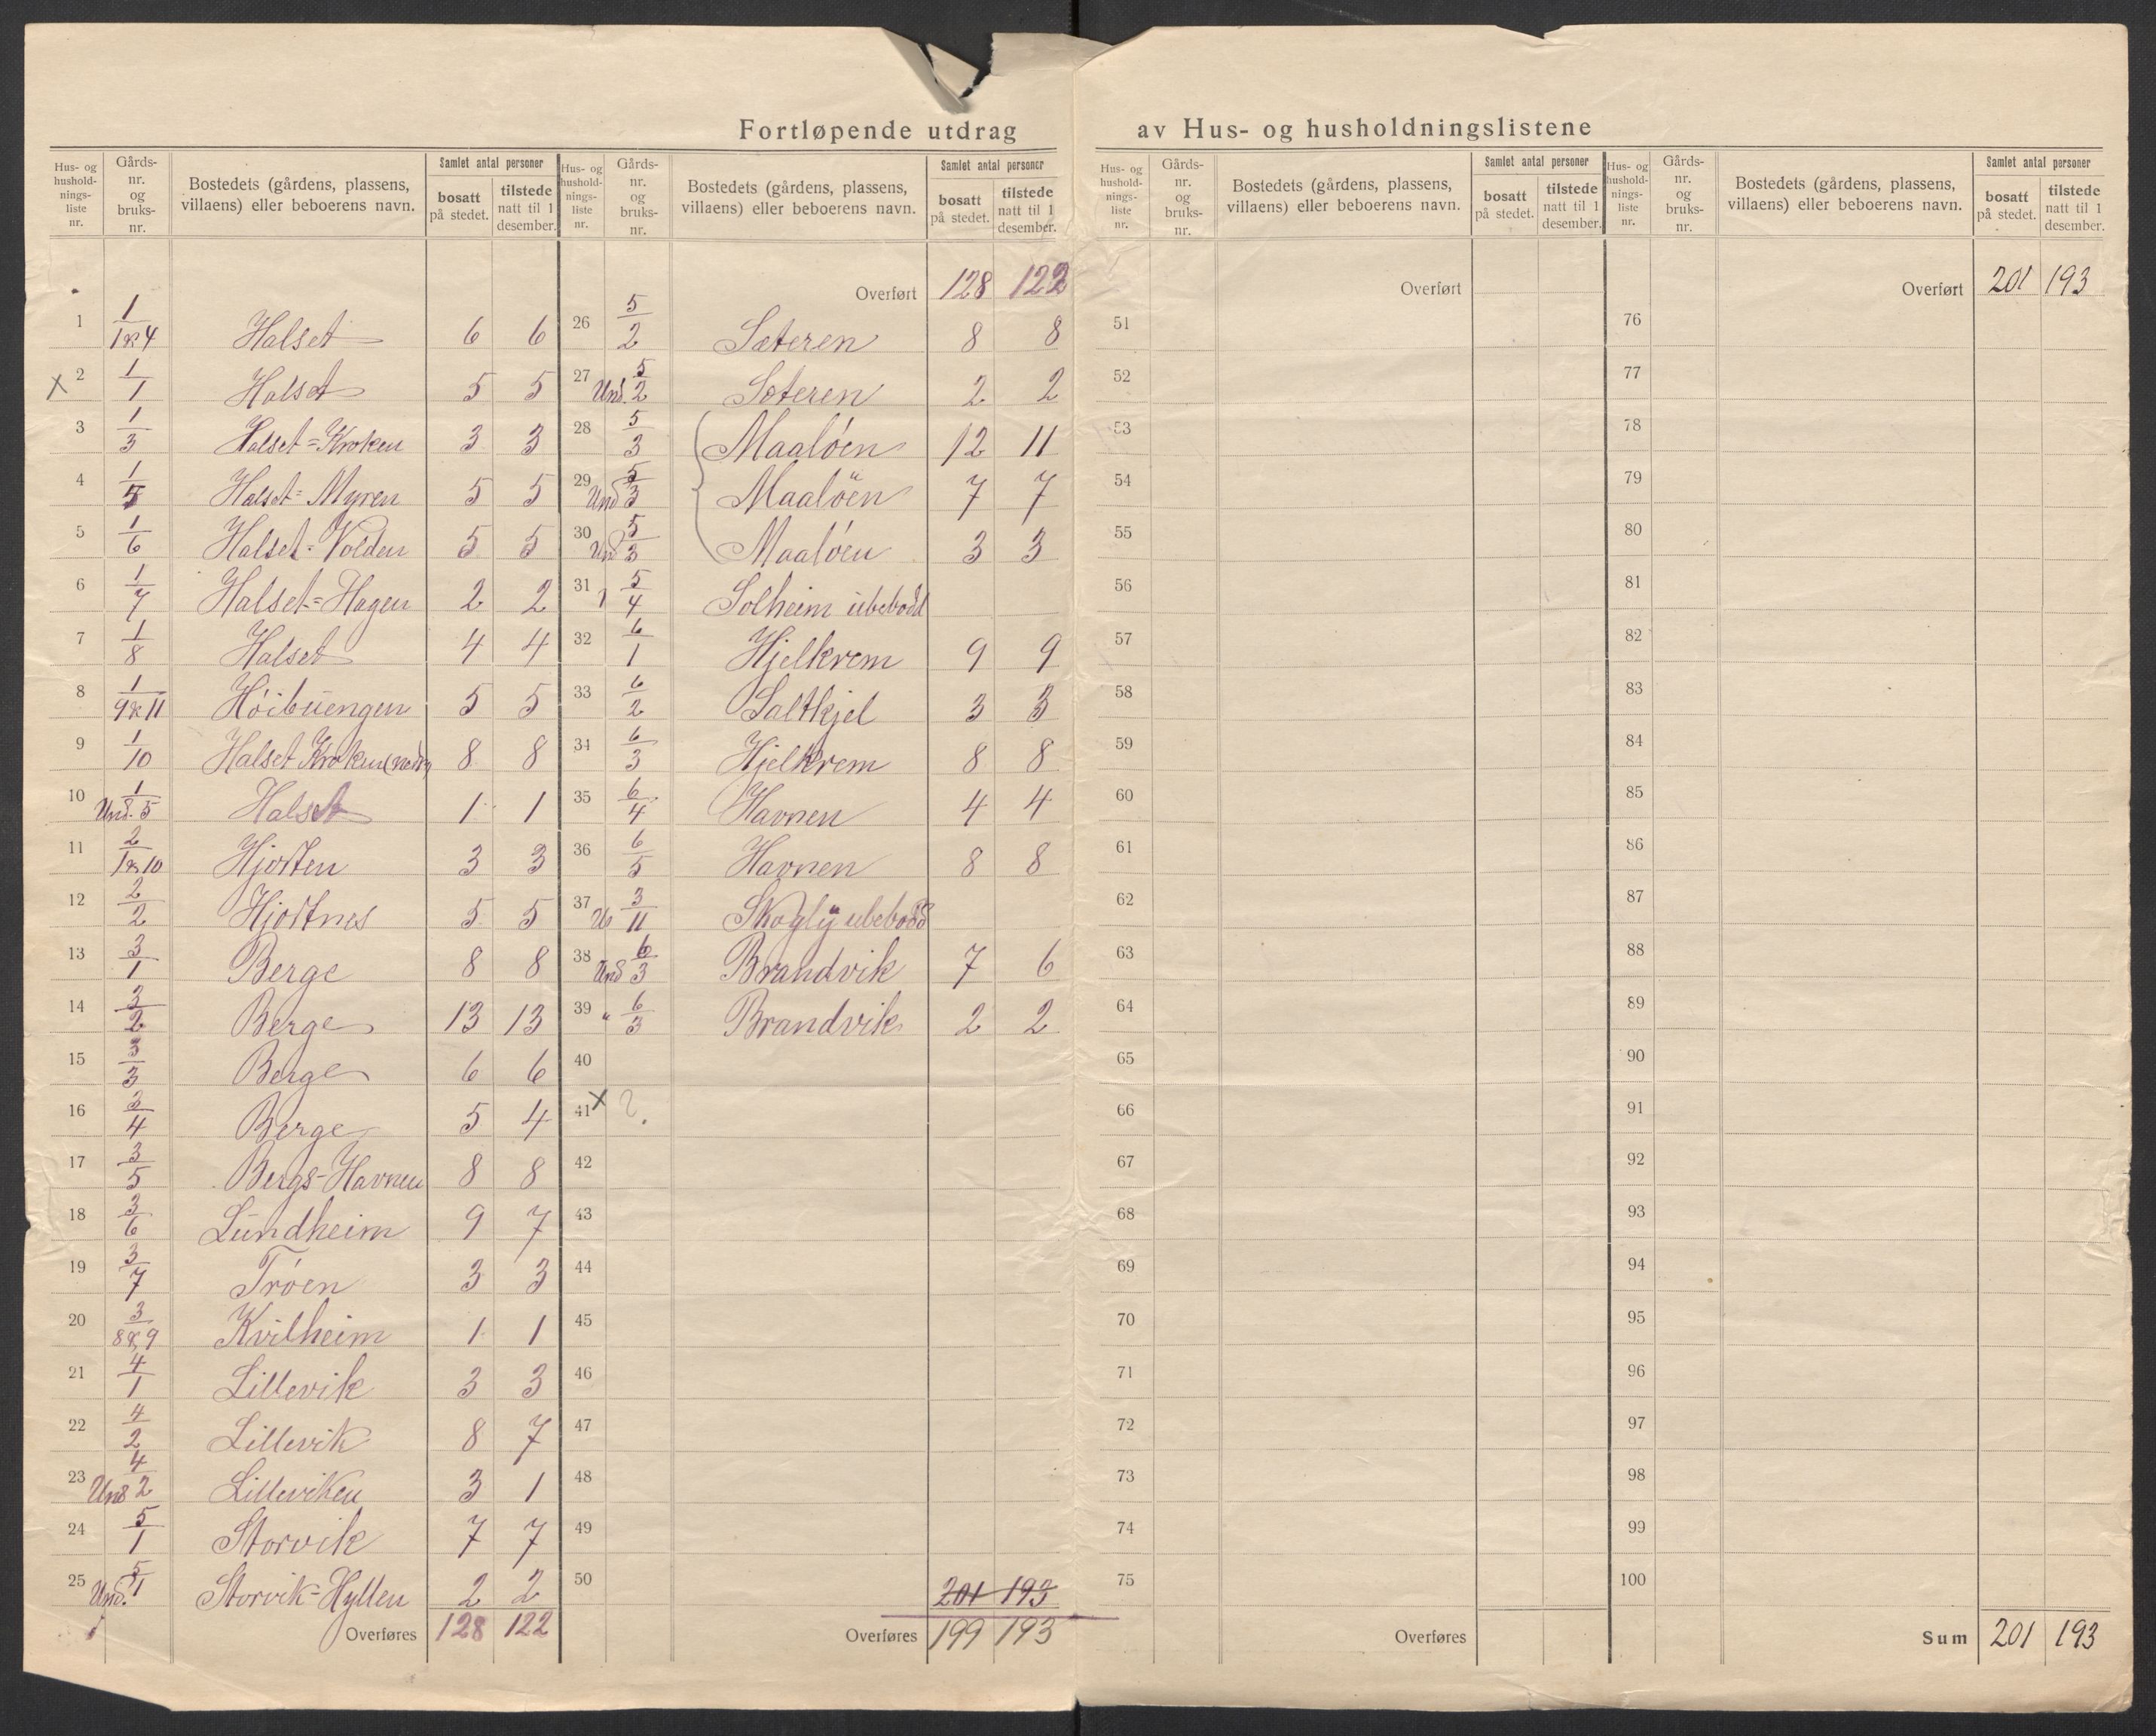 Fortløpende utdrag av Hus- og husholdningslistene
Hus- og husholdnings-liste nr. Gårds-nr. og bruks-nr. Bostedets (gårdens, plassens, villaens) eller beboerens navn. Samlet antal personer bosatt på stedet. tilstede natt til 1 desember.
1 1/1 & 4 Halset 6 6
x 2 1/1 Halset 5 5
3 1/3 Halset=Kroken 3 3
4 1/5 Halset=Myren 5 5
5 1/6 Halset=Volden 5 5
6 1/7 Halset=Hagen 2 2
7 1/8 Halset 4 4
8 1/9 & 11 Höibuengen 5 5
9 1/10 Halset Kroken 8 8
10 Und. 1/5 Halset 1 1
11 2/1 & 10 Hjorten 3 3
12 2/2 Hjortnes 5 5
13 3/1 Berge 8 8
14 3/2 Berge 13 13
15 3/3 Berge 6 6
16 3/4 Berge 5 4
17 3/5 Bergs-Havnen 8 8
18 3/6 Lundheim 9 7
19 3/7 Tröen 3 3
20 3/8 & 9 Kvilheim 1 1
21 4/1 Lillevik 3 3
22 4/2 Lillevik 8 7
23 Und 4/2 Lilleviken 3 1
24 5/1 Storvik 7 7
25 Und. 5/1 Storvik-Hyllen 2 2
Overføres 128 122
Hus- og husholdnings-liste nr. Gårds-nr. og bruks-nr. Bostedets (gårdens, plassens, villaens) eller beboerens navn. Samlet antal personer bosatt på stedet. tilstede natt til 1 desember.
Overført 128 122
26 5/2 Sæteren 8 8
27 Und. 5/2 Sæteren 2 2
28 5/3 Maalöen 12 11
29 Und 5/3 Maalöen 7 7
30 Und 5/3 Maalöen 3 3
31 5/4 Solheim ubebodd
32 6/1 Hjelkrem 9 9
33 6/2 Saltkjel 3 3
34 6/3 Hjelkrem 8 8
35 6/4 Havnen 4 4
36 6/5 Havnen 8 8
37 U 3/11 Skogly ubebodd
38 Und 6/3 Brandvik 7 6
39 " 6/3 Brandvik 2 2
40
41 x ?
42
43
44
45
46
47
48
49
50
201 193
Overføres 199 193
Hus- og husholdnings-liste nr. Gårds-nr. og bruks-nr. Bostedets (gårdens, plassens, villaens) eller beboerens navn. Samlet antal personer bosatt på stedet. tilstede natt til 1 desember.
Overført
51
52
53
54
55
56
57
58
59
60
61
62
63
64
65
66
67
68
69
70
71
72
73
74
75
Overføres
Hus- og husholdnings-liste nr. Gårds-nr. og bruks-nr. Bostedets (gårdens, plassens, villaens) eller beboerens navn. Samlet antal personer bosatt på stedet. tilstede natt til 1 desember.
Overført 201 193
76
77
78
79
80
81
82
83
84
85
86
87
88
89
90
91
92
93
94
95
96
97
98
99
100
Sum 201 193